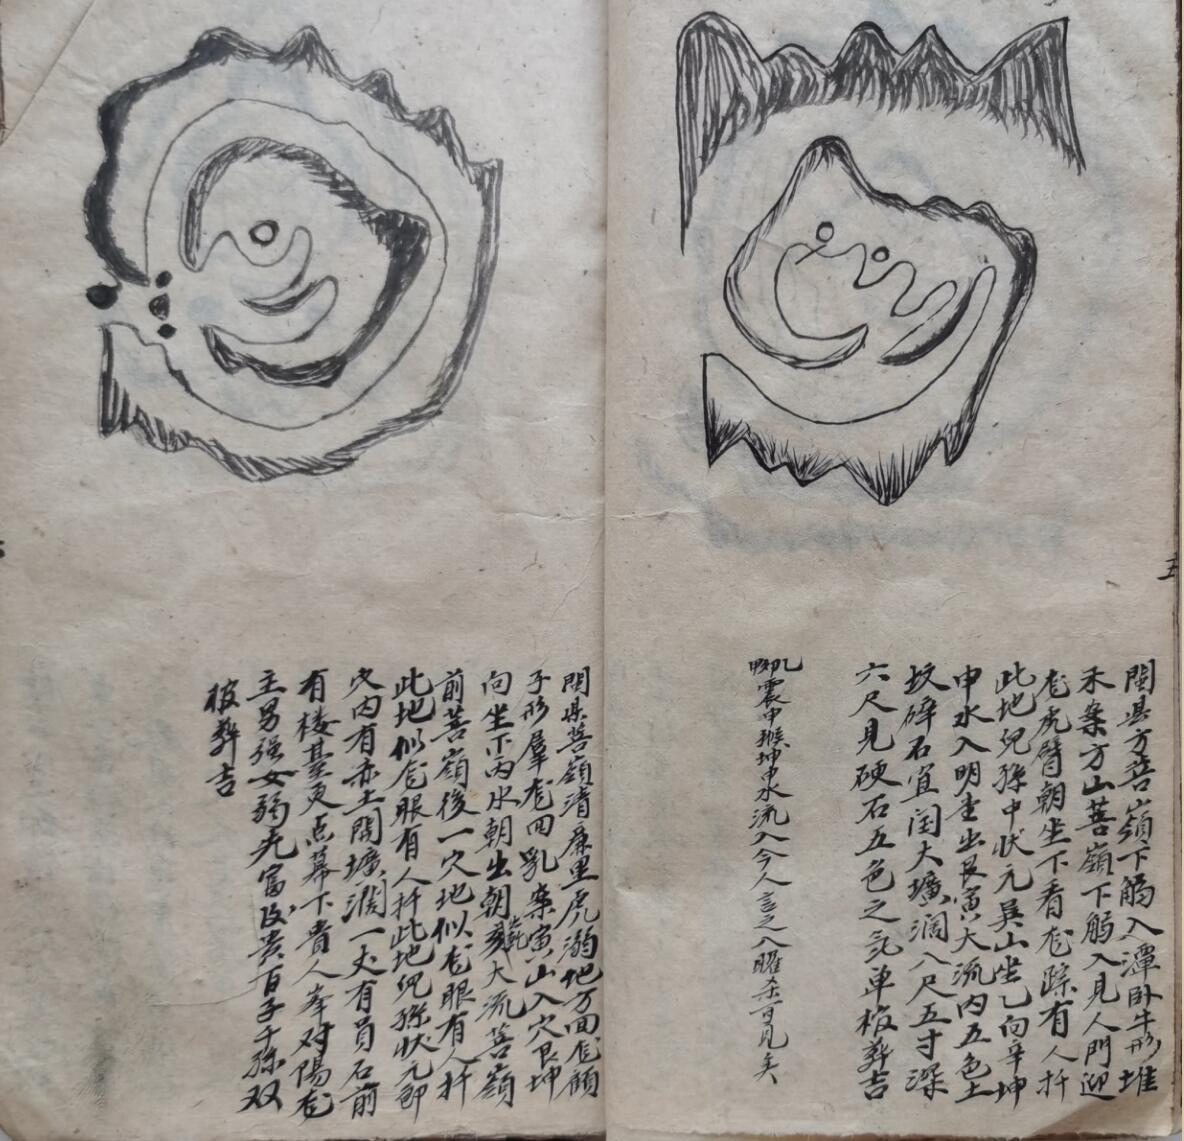 閩县方菩嶺下觸入潭卧牛形堆
禾案方山菩嶺下觸入見人門迎
虎臂朝坐下看踪有人扦
此地兒孫中状元異山坐乙向辛坤
申水入明堂出艮寅大流内五色土
坟碎石宜開大壙濶八尺五寸深
六尺見硬石五色之氣单棺葬吉
震申猴坤中水流入今人言之八曜杀可見矣
閩县菩嶺清廉里虎溺地方面顔
子形羣四乳案寅山入穴艮坤
向坐下丙水朝出朝乾大流菩嶺
前菩嶺後一穴地似眼有人扦
此地似眼有人扦此地兒孫状元郎
穴内有赤土開壙濶一丈有員石前
有楼基更点幕下貴人峯对陽
主男强女弱先富後貴百子千孫双
棺葬吉